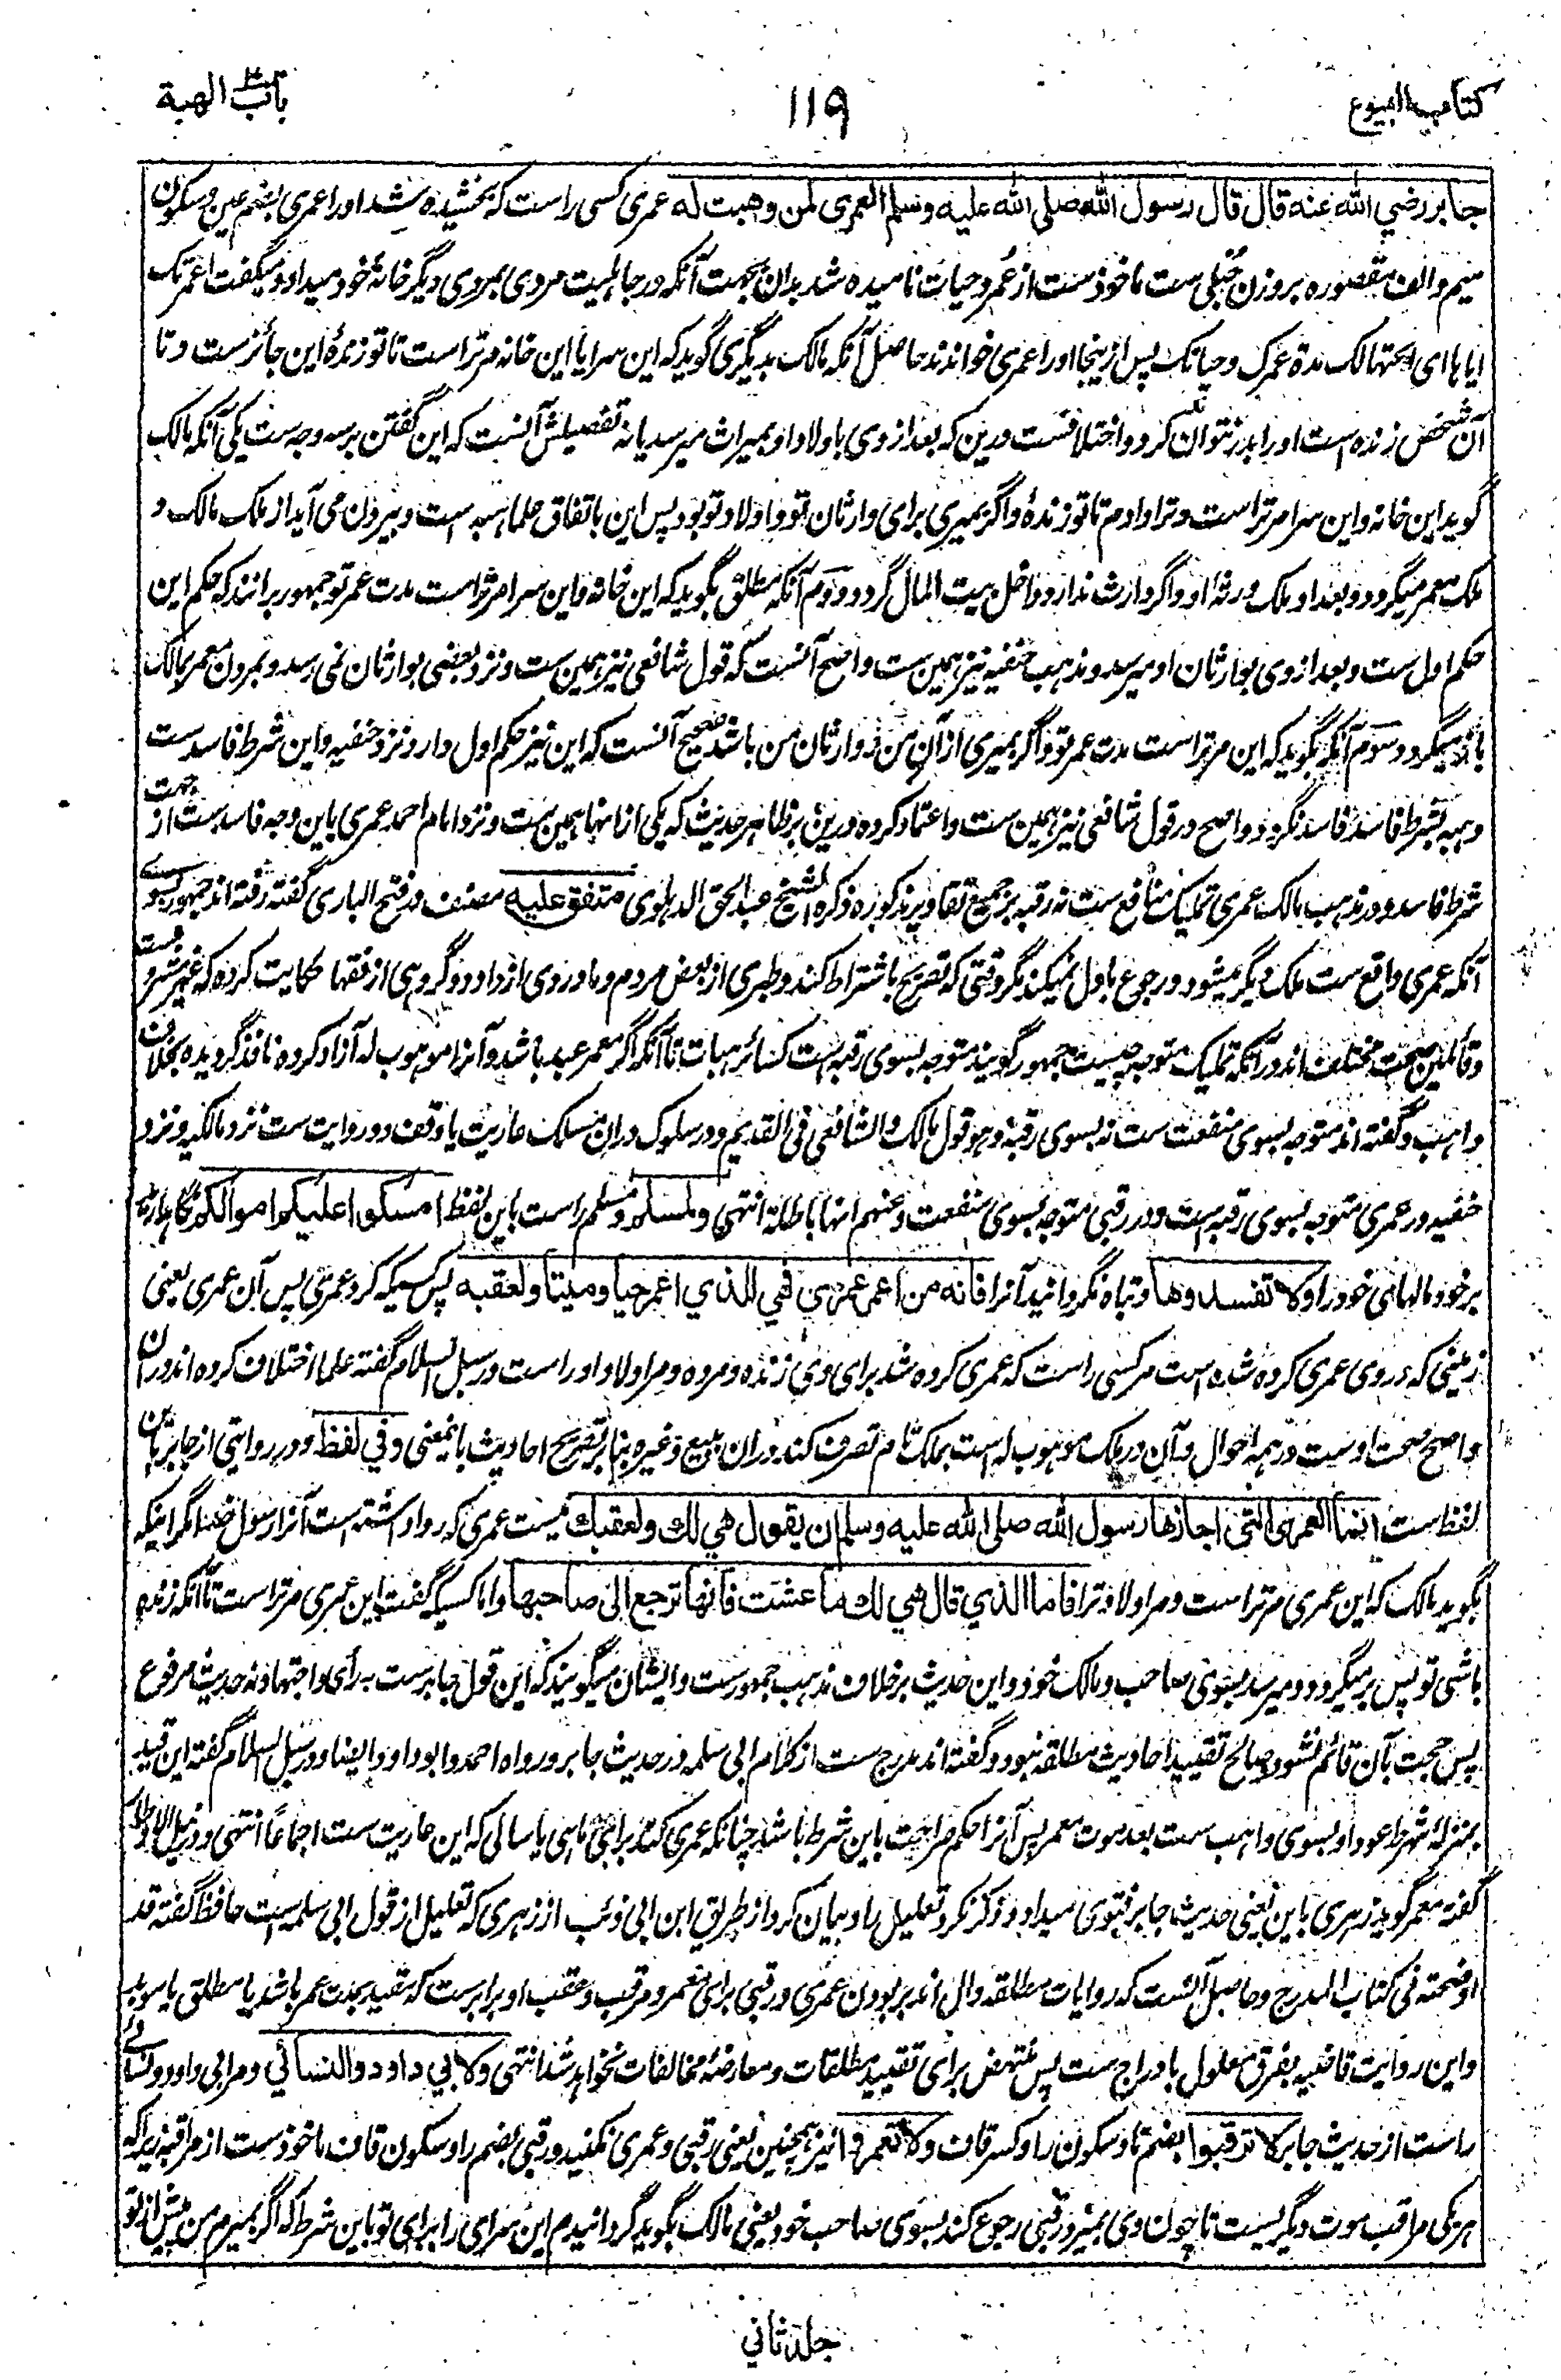 كتاب البيوع
١١٩
باب الهبة
جابر رضي الله عنه قال قال رسول الله صلى الله عليه وسلم العمرى لمن وهبت له عمری کسی راست که بخشیده شد اورا عمری بضم عین و سکون
میم و الف مقصوره بر وزن حبلی ست ماخوذ ست از عمر و حیات نامیده شد بدان بجهت آنکه در جاهلیت مردی بمردی دیگر خانهٔ خود میداد و میگفت اعمرتک
ایاها ای ابحتها لک مدة عمرک و حیاتک پس ازینجا اورا عمری خواندند حاصل آنکه مالک بدیگری گوید که این سرا یا این خانه مر تراست تا تو زندهٔ این جائزست و تا
آن شخص زنده است اورا بدر نتوان کرد و اختلافست درین که بعد از وی باولاد او بمیراث میرسد یا نه تفصیلش آنست که این گفتن بر سه وجه ست یکی آنکه مالک
گوید این خانه و این سرا مر تراست و ترا دادم تا تو زندهٔ و اگر بمیری برای وارثان تو و اولاد تو بود پس این باتفاق علما هبه است و بیرون می آید از ملک مالک و
ملک معمر میگردد و بعد او ملک ورثهٔ او و اگر وارث ندارد داخل بیت المال گردد دوم آنکه مطلق بگوید که این خانه و این سرا مر تراست مدت عمر تو جمهور برانند که حکم این
حکم اول ست و بعد از وی بوارثان او میرسد و مذهب حنفیه نیز همین ست و اصح آنست که قول شافعی نیز همین ست و نزد بعضی بوارثان نمی رسد و بمردن معمر بمالک
باز میگردد سوم آنکه بگوید که این مر تراست مدت عمر تو و اگر بمیری از آن من و وارثان من باشد صحیح آنست که این نیز حکم اول دارد نزد حنفیه و این شرط فاسدست
و هبه بشرط فاسد فاسد نگردد و اصح در قول شافعی نیز همین ست و اعتماد کرده درین بر ظاهر حدیث که یکی از انها همین ست و نزد امام احمد عمری باین وجه فاسدست از جهت
شرط فاسد و در مذهب مالک عمری تملیک منافع ست نه رقبه بر جمیع تقادیر مذکوره ذکره الشیخ عبد الحق الدهلوی متفق عليه مصنف در فتح الباری گفته رفته اند جمهور بسوی
آنکه عمری واقع ست ملک دیگر میشود و رجوع باول نمیکند مگر وقتی که تصریح باشتراط کند و طبری از بعض مردم و ماوردی از داود و گروهی از فقها حکایت کرده که غیر مشروعست
و قائلین بصحت مختلف اند در آنکه تملیک متوجه چیست جمهور گویند متوجه بسوی رقبه است کسائر هبات تا آنکه اگر معمر عبد باشد و آنرا موهوب له آزاد کرده نافذ گردیده بخلاف
واهب و گفته اند متوجه بسوی منفعت ست نه بسوی رقبه و هو قول مالک و الشافعی فی القدیم و در سلوک دران مسلک عاریت یا وقف دو روایت ست نزد مالکیه و نزد
حنفیه در عمری متوجه بسوی رقبه است و در رقبی متوجه بسوی منفعت و عنهم انها باطلة انتهی ولمسلم و مسلم راست باین لفظ امسكوا عليكم اموالكم نگاهدارید
بر خود مالهای خود را ولا تفسدوها و تباه نگردانید آنرا فانه من اعمر عمرى فهي للذي اعمر حيا وميتا ولعقبه پس کسیکه کرد عمری پس آن عمری یعنی
زمینی که در وی عمری کرده شده است مر کسی راست که عمری کرده شد برای وی زنده و مرده و مر اولاد اوراست در سبل السلام گفته علما اختلاف کرده اند دران
و اصح صحت اوست در همه احوال و آن در ملک موهوب له است بملک تام تصرف کند دران ببیع و غیره بنا بر تصریح احادیث باینمعنی وفي لفظ و در روایتی از جابر باین
لفظ ست انما العمرى التي اجازها رسول الله صلى الله عليه وسلم ان يقول هي لك ولعقبك نیست عمری که روا داشته است آنرا رسول خدا مگر اینکه
بگوید مالک که این عمری مر تراست و مر اولاد ترا فاما الذي قال هي لك ما عشت فانها ترجع الى صاحبها و اما کسیکه گفت این عمری مر تراست تا آنکه زنده
باشی تو پس بر میگردد و میرسد بسوی صاحب و مالک خود و این حدیث بر خلاف مذهب جمهورست و ایشان میگویند که این قول جابر ست به رأی و اجتهاد نه حدیث مرفوع
پس حجت بآن قائم نشود و صالح تقیید احادیث مطلقه نبود و گفته اند مدرج ست از کلام ابی سلمه در حدیث جابر و رواه احمد و ابو داود ایضا و در سبل السلام گفته این قید
بمنزلهٔ شرط عود او بسوی واهب ست بعد موت معمر پس آنرا حکم صراحت باین شرط باشد چنانکه عمری کند برای ماهی یا سالی که این عاریت ست اجماعا انتهی و در نیل الاوطار
گفته معمر گوید زهری باین یعنی حدیث جابر فتوی میداد و ذکر نکرد تعلیل را و بیان کرد از طریق ابن ابی ذئب از زهری که تعلیل از قول ابی سلمه است حافظ گفته قد
اوضحته فی کتاب المدرج و حاصل آنست که روایات مطلقه دال اند بر بودن عمری و رقبی برای معمر و مرقب و عقب او برابرست که مقید بمدت عمر باشد یا مطلق یا موبد
و این روایت قاضیه بفرق معلول بادراج ست پس منتهض برای تقیید مطلقات و معارضهٔ مخالفات نخواهد شد انتهی ولابي داود والنسائي و مر ابی داود و نسائی
راست از حدیث جابر لا ترقبوا بضم تا و سکون را و کسر قاف ولا تعمروا نیز همچنین یعنی رقبی و عمری نکنید و رقبی بضم را و سکون قاف ماخوذ ست از مراقبه زیراکه
هر یکی مراقب موت دیگریست تا چون وی بمیرد رقبی رجوع کند بسوی صاحب خود یعنی مالک بگوید گردانیدم این سرای را برای تو باین شرط که اگر بمیرم من پیش از تو
جلد ثاني